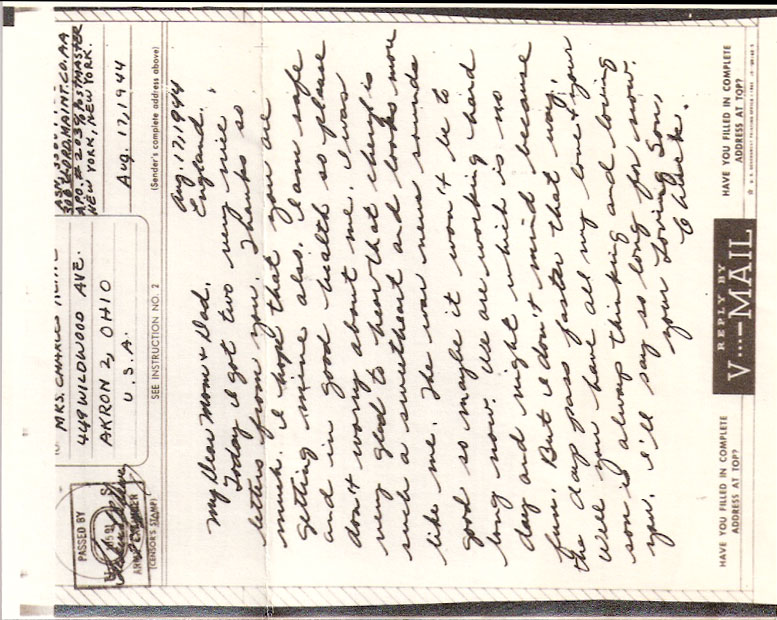 PASSED BY
ARMY EXAMINER
(CENSOR'S STAMP)
MRS. CHARLES
449 WILDWOOD AVE.
AKRON 2, OHIO
U.S.A.
SEE INSTRUCTION NO. 2
ORD. MAINT. CO. AA
APO. # 203 % POSTMASTER
NEW YORK, NEW YORK.
Aug. 17, 1944
(Sender's complete address above)
Aug. 17, 1944
England.
My Dear Mom & Dad.
Today I got two very nice
letters from you. Thanks so
much. I hope that you are
getting mine also. I am safe
and in good health so please
don't worry about me. I was
very glad to hear that cheryl is
such a sweetheart and looks more
like me. The war news sounds
good so maybe it won't be to
long now. We are working hard
day and night which is no
fun. But I don't mind because
the days pass faster that way.
Well you have all my love & your
son is always thinking and loving
you. I'll say so long for now.
your Loving Son,
Chuck.
HAVE YOU FILLED IN COMPLETE
ADDRESS AT TOP?
REPLY BY
V···—MAIL
HAVE YOU FILLED IN COMPLETE
ADDRESS AT TOP?